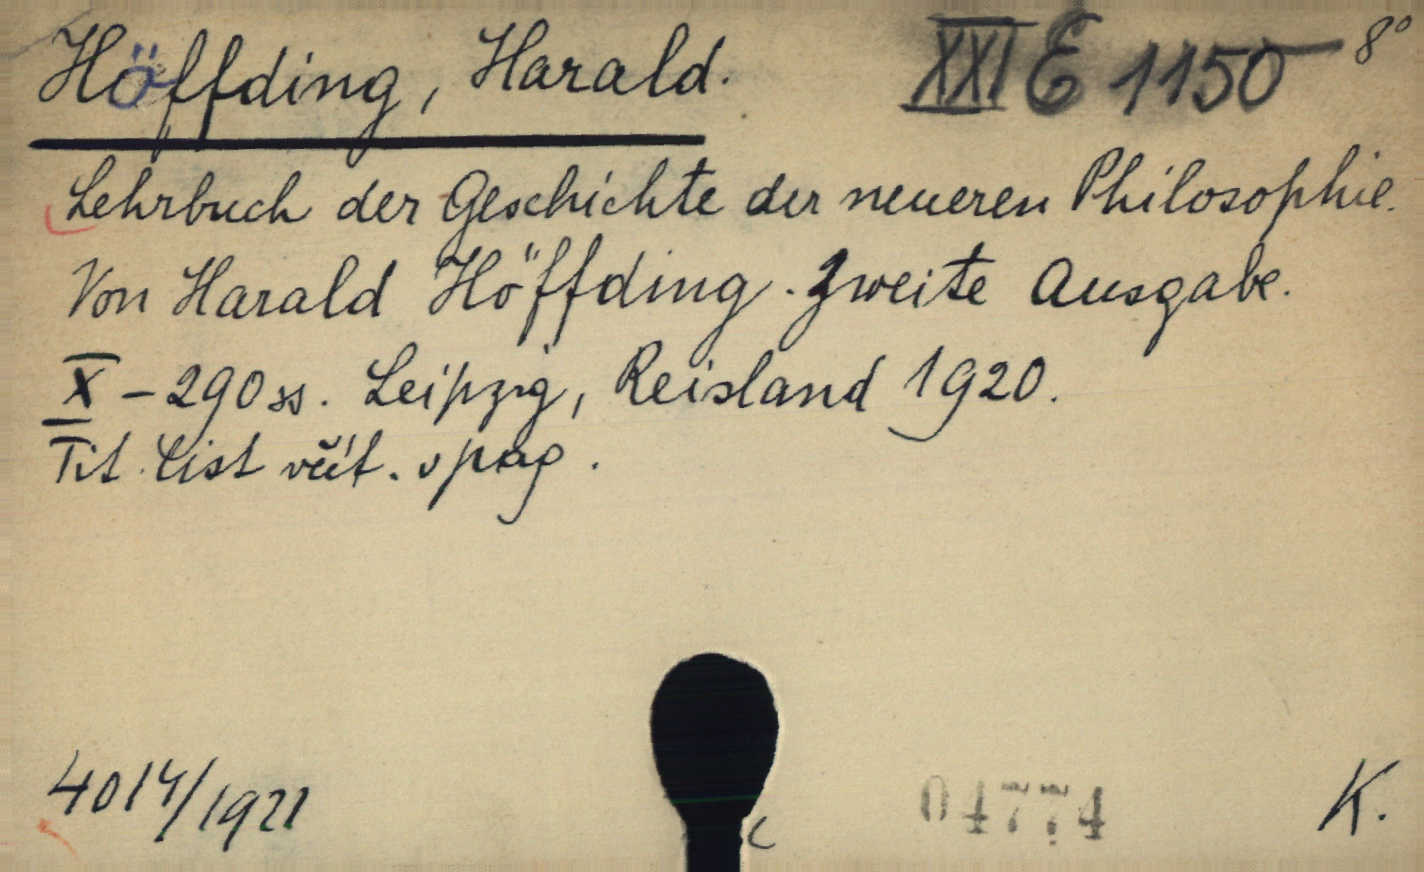 Höffding, Harald. XXI E 1150 8°
Lehrbuch der Geschichte der neueren Philosophie.
Von Harald Höffding. Zweite Ausgabe.
X – 290 ss. Leipzig, Reisland 1920.
Tit. list v pag.
4014/1921
K.